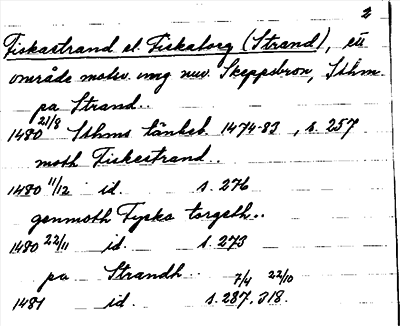 2
Fiskastrand el. Fiskatorg (Strand), ett
område motsv. ung nuv. Skeppsbron, Sthm.
pa Strand..
1480 21/8 Sthms tänkeb. 1474-83, s. 257
moth Fiskestrand..
1480 11/12 id. s. 276
genmoth Fyska torgeth..
1480 22/11 id. s. 273
pa Strandh..
1481 id. s. 287, 7/4 318. 22/10